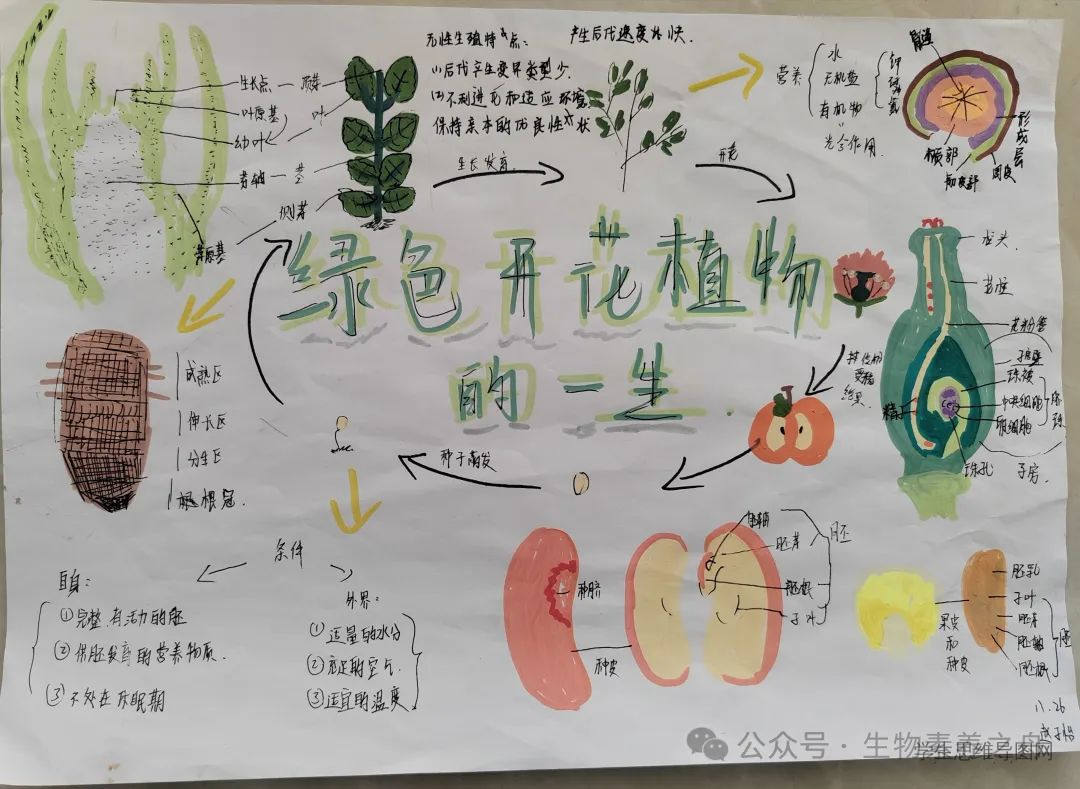 无性生殖特点: 产生后代速度快
(1)后代产生变异类型少.
(2)不利进化和适应环境
保持亲本的优良性状
生长点
叶原基
幼叶
芽轴
芽原基
叶
茎
侧芽
生长发育
开花
营养
水
无机盐
有机物
光合作用.
钾
磷
氮
髓
形成层
木质部
韧皮部
绿色开花植物
的一生
柱头
花柱
花粉管
子房壁
珠被
中央细胞
卵细胞
胚珠
精子
珠孔
子房
传粉
受精
结果
成熟区
伸长区
分生区
根冠
种子萌发
条件
自身:
①完整有活力的胚
②供胚发育的营养物质.
③不处在休眠期
外界:
①适量的水分
②充足的空气
③适宜的温度
种脐
种皮
胚轴
胚芽
胚根
子叶
胚
果皮
和
种皮
胚乳
子叶
胚芽
胚轴
胚根
胚
11.26
公众号·生物素养之窗
学生思维导图网